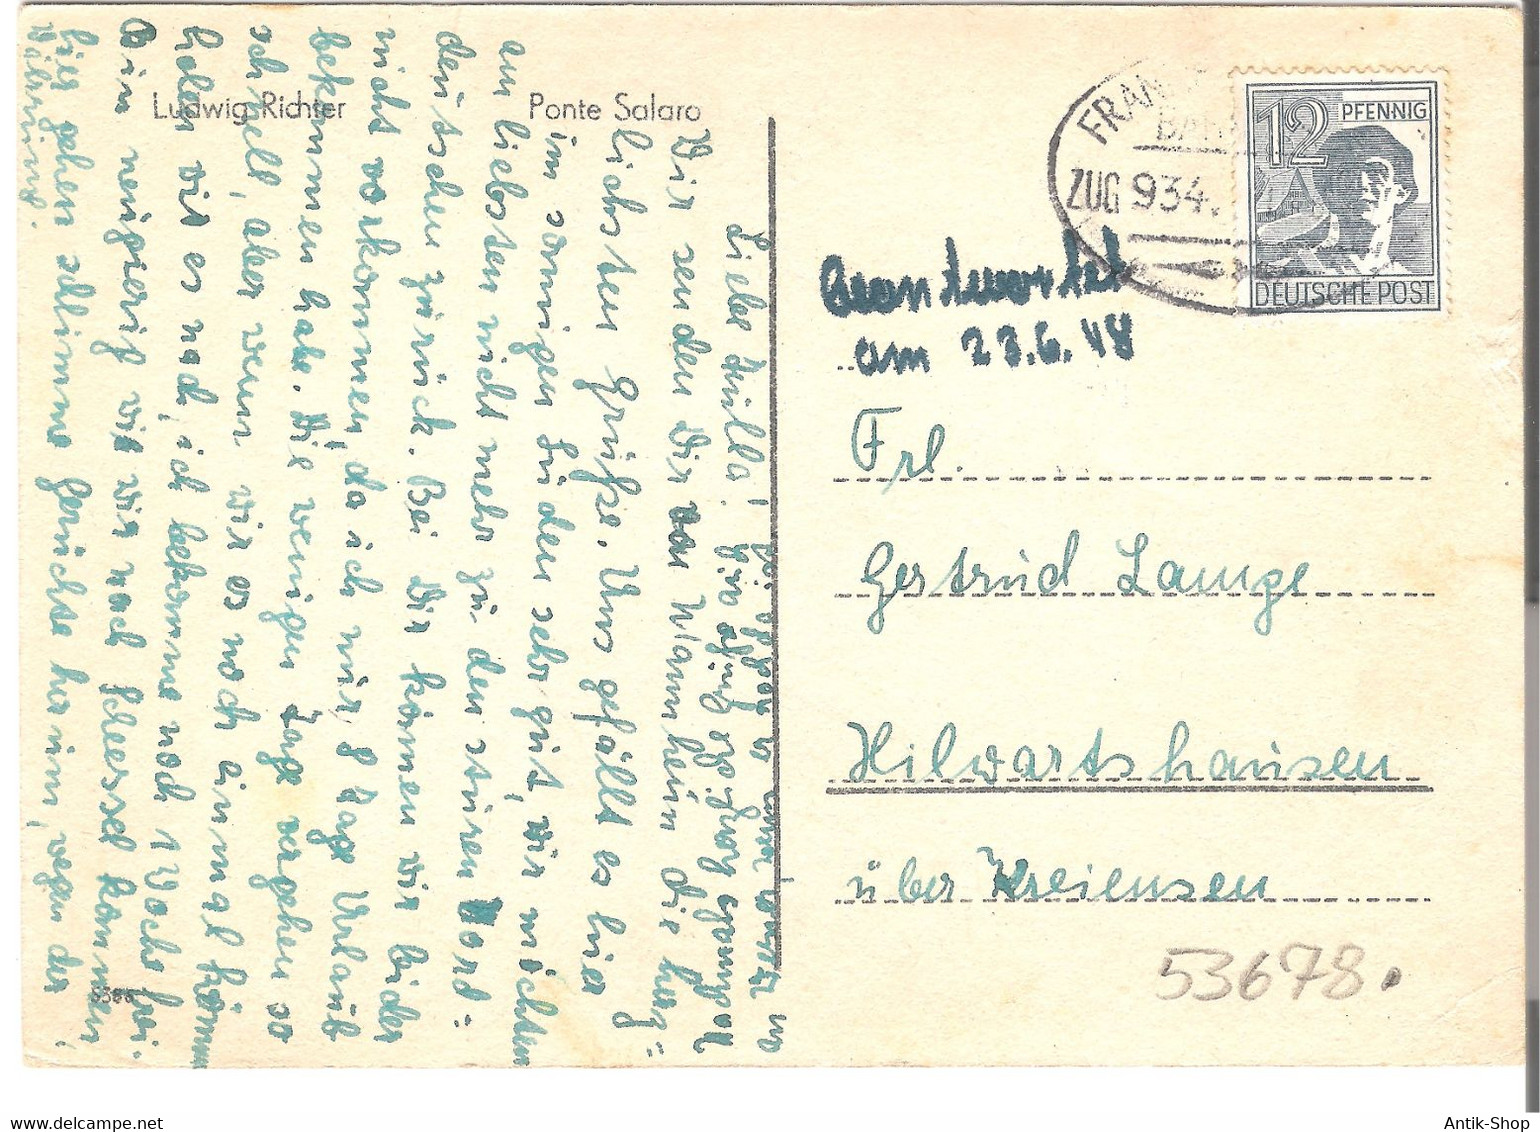 Ludwig Richter
Ponte Salaro
Liebe Trulla!
Wir senden Dir von Mannheim die herz=
lichsten Grüße. Uns gefällt es hier
im sonnigen Süden sehr gut, wir möchten
am liebsten nicht mehr zu den sturen Nord=
deutschen zurück. Bei Dir können wir leider
nicht vorkommen, da ich nur 8 Tage Urlaub
bekommen habe. Die wenigen Tage vergehen so
schnell, aber wenn wir es noch einmal können
holen wir es nach, ich bekomme noch 1 Woche frei.
Bin neugierig wie wir nach Scheessel kommen
hier gehen schlimme Gerüchte herum, wegen der
Währung.
5386
FRAN
BAH
ZUG 934
12 PFENNIG
DEUTSCHE POST
Beantwortet
am 23.6.48
Frl.
Gertrud Lange
Hilwartshausen
über Kreiensen
53678.
Antik-Shop
www.delcampe.net